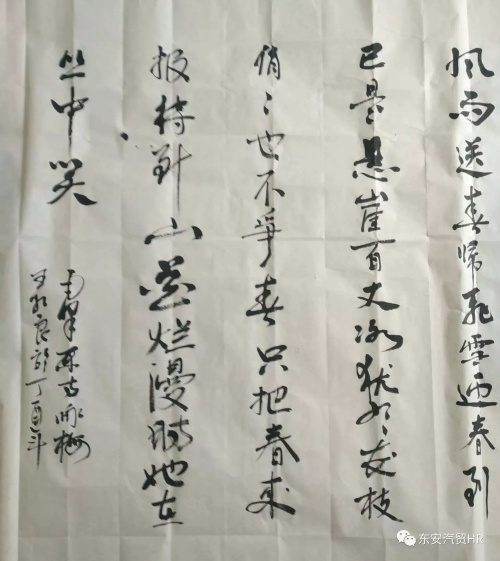 风雨送春归飞雪迎春到
已是悬崖百丈冰犹有花枝
俏俏也不争春只把春来
报待到山花烂漫时她在
丛中笑
咏梅
丁酉
东安汽贸HR